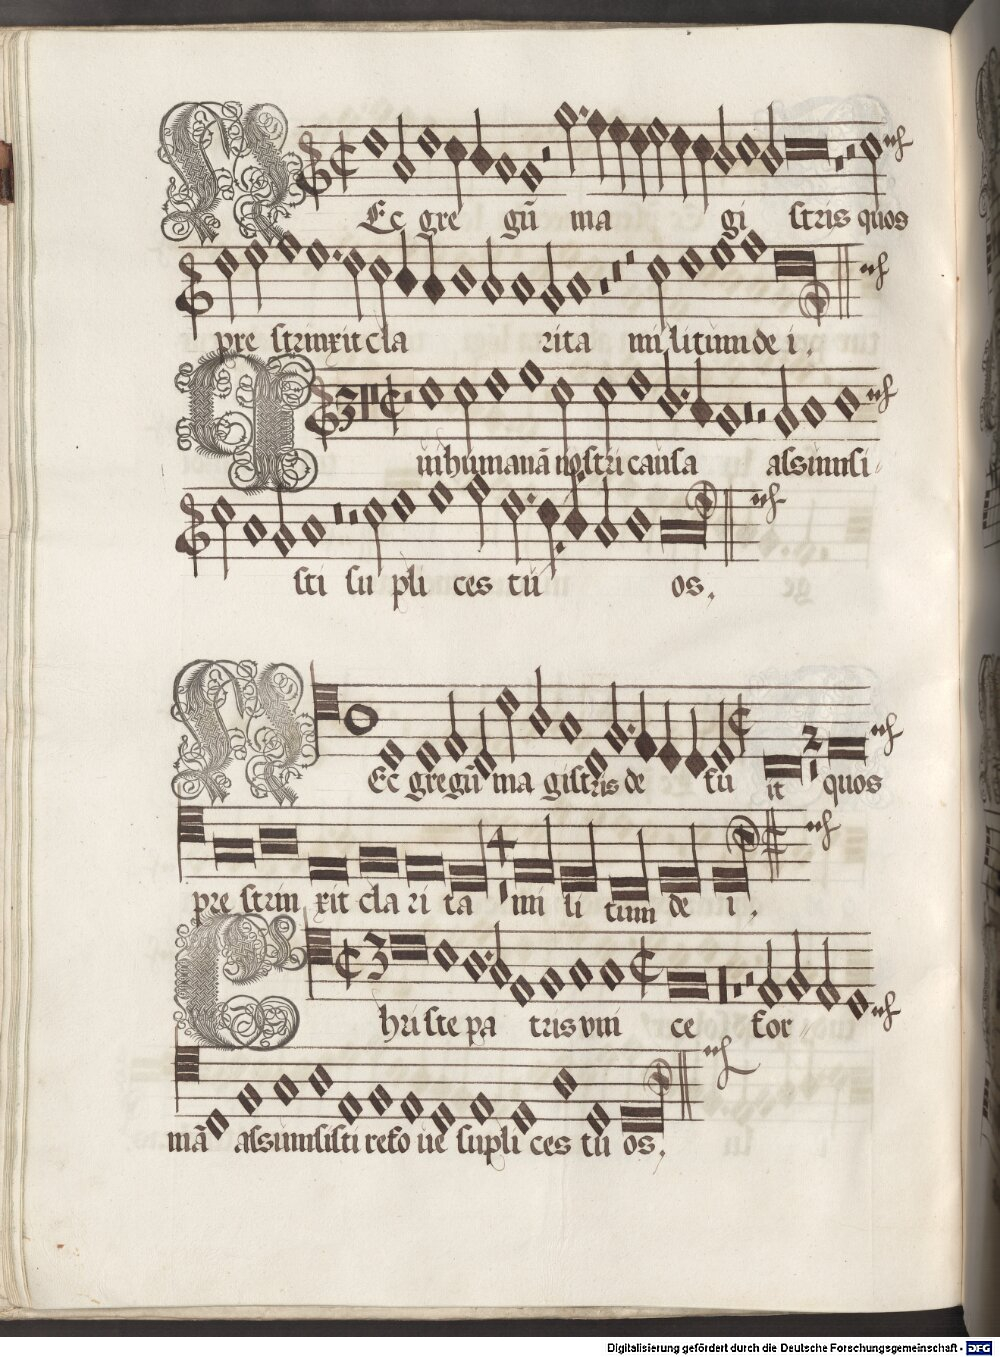 NEc gre gū ma gi stris quos
pre strinxit cla rita militum de i,
Qui humanā nostri causa assimusi-
sti su pli ces tu os,
NEc gregū ma gistris de fu it quos
pre strin xit cla ri ta mi li tum de i,
Christe pa tris uni ce for-
mā assimsisti refo ve supli ces tu os,
Digitalisierung gefördert durch die Deutsche Forschungsgemeinschaft - DFG